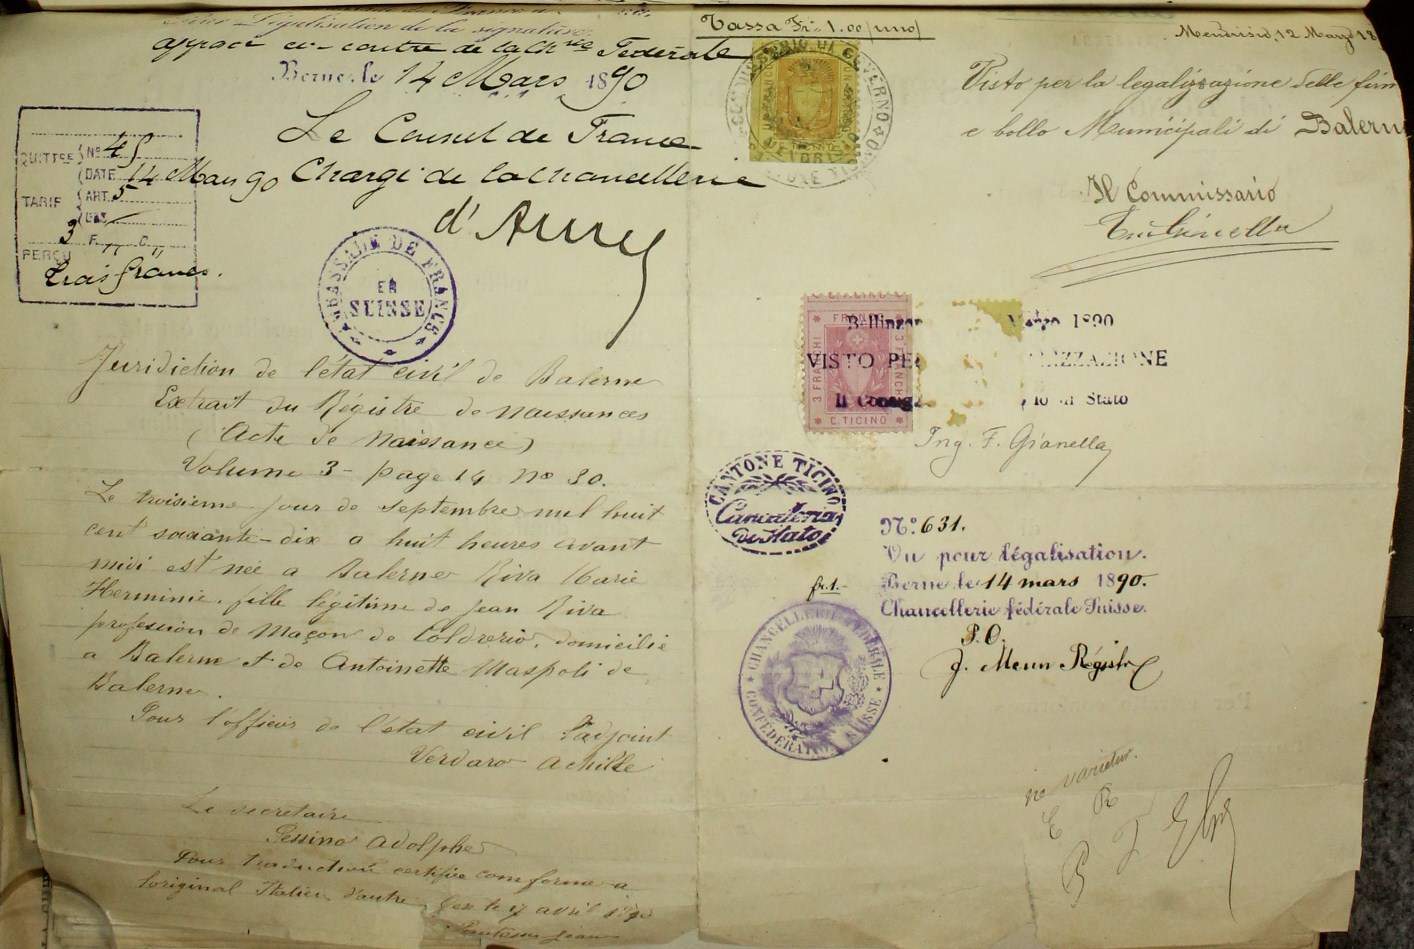 Pour Légalisation de la signature
apposée ci-contre de la Ch^rie Fédérale
Berne, le 14 Mars 1890
Le Consul de France
Chargé de la chancellerie
d'
QUITTCE
N° 45
DATE 14 Mars 90
TARIF
ART. 5
3 F. " C. "
PERÇU
trois francs.
AMBASSADE DE FRANCE
EN
SUISSE
Juridiction de l'état civil de Balerne
Extrait du Régistre de naissances
(Acte de Naissance)
Volume 3 - page 14 No 30.
Le troisieme jour de septembre mil huit
cent soixante-dix a huit heures avant
midi est née a Balerne Riva Marie
Herminie, fille légitime de Jean Riva
profession de Maçon de Coldrerio, domicilié
a Balerne et de Antoinette Maspoli de
Balerne.
Pour l'officier de l'état civil l'adjoint
Verdaro Achille
Le secretaire
Pessina Adolphe
Pour traduction certifiée conforme a
l'original Italien d'autre le 17 avril
Jean
Tassa Fr. 1.00 (uno)
Mendrisio, 12 Marzo 18
COMMISSARIO DI GOVERNO
TICINO
Visto per la legalizzazione delle firm
e bollo Municipali di Balern
Il Commissario
FRANCHI
3 FRANCHI
C. TICINO
Bellinzon Marzo 1890
VISTO PE LIZZAZIONE
Il Consig io di Stato
Ing. F. Gianella
CANTONE TICINO
Cancelleria
di Stato
N° 631.
Vu pour légalisation.
Berne le 14 mars 1890.
fr. 1.-
Chancellerie fédérale Suisse.
P.O.
CHANCELLERIE FÉDÉRALE
CONFÉDÉRATION SUISSE
ne varietur.